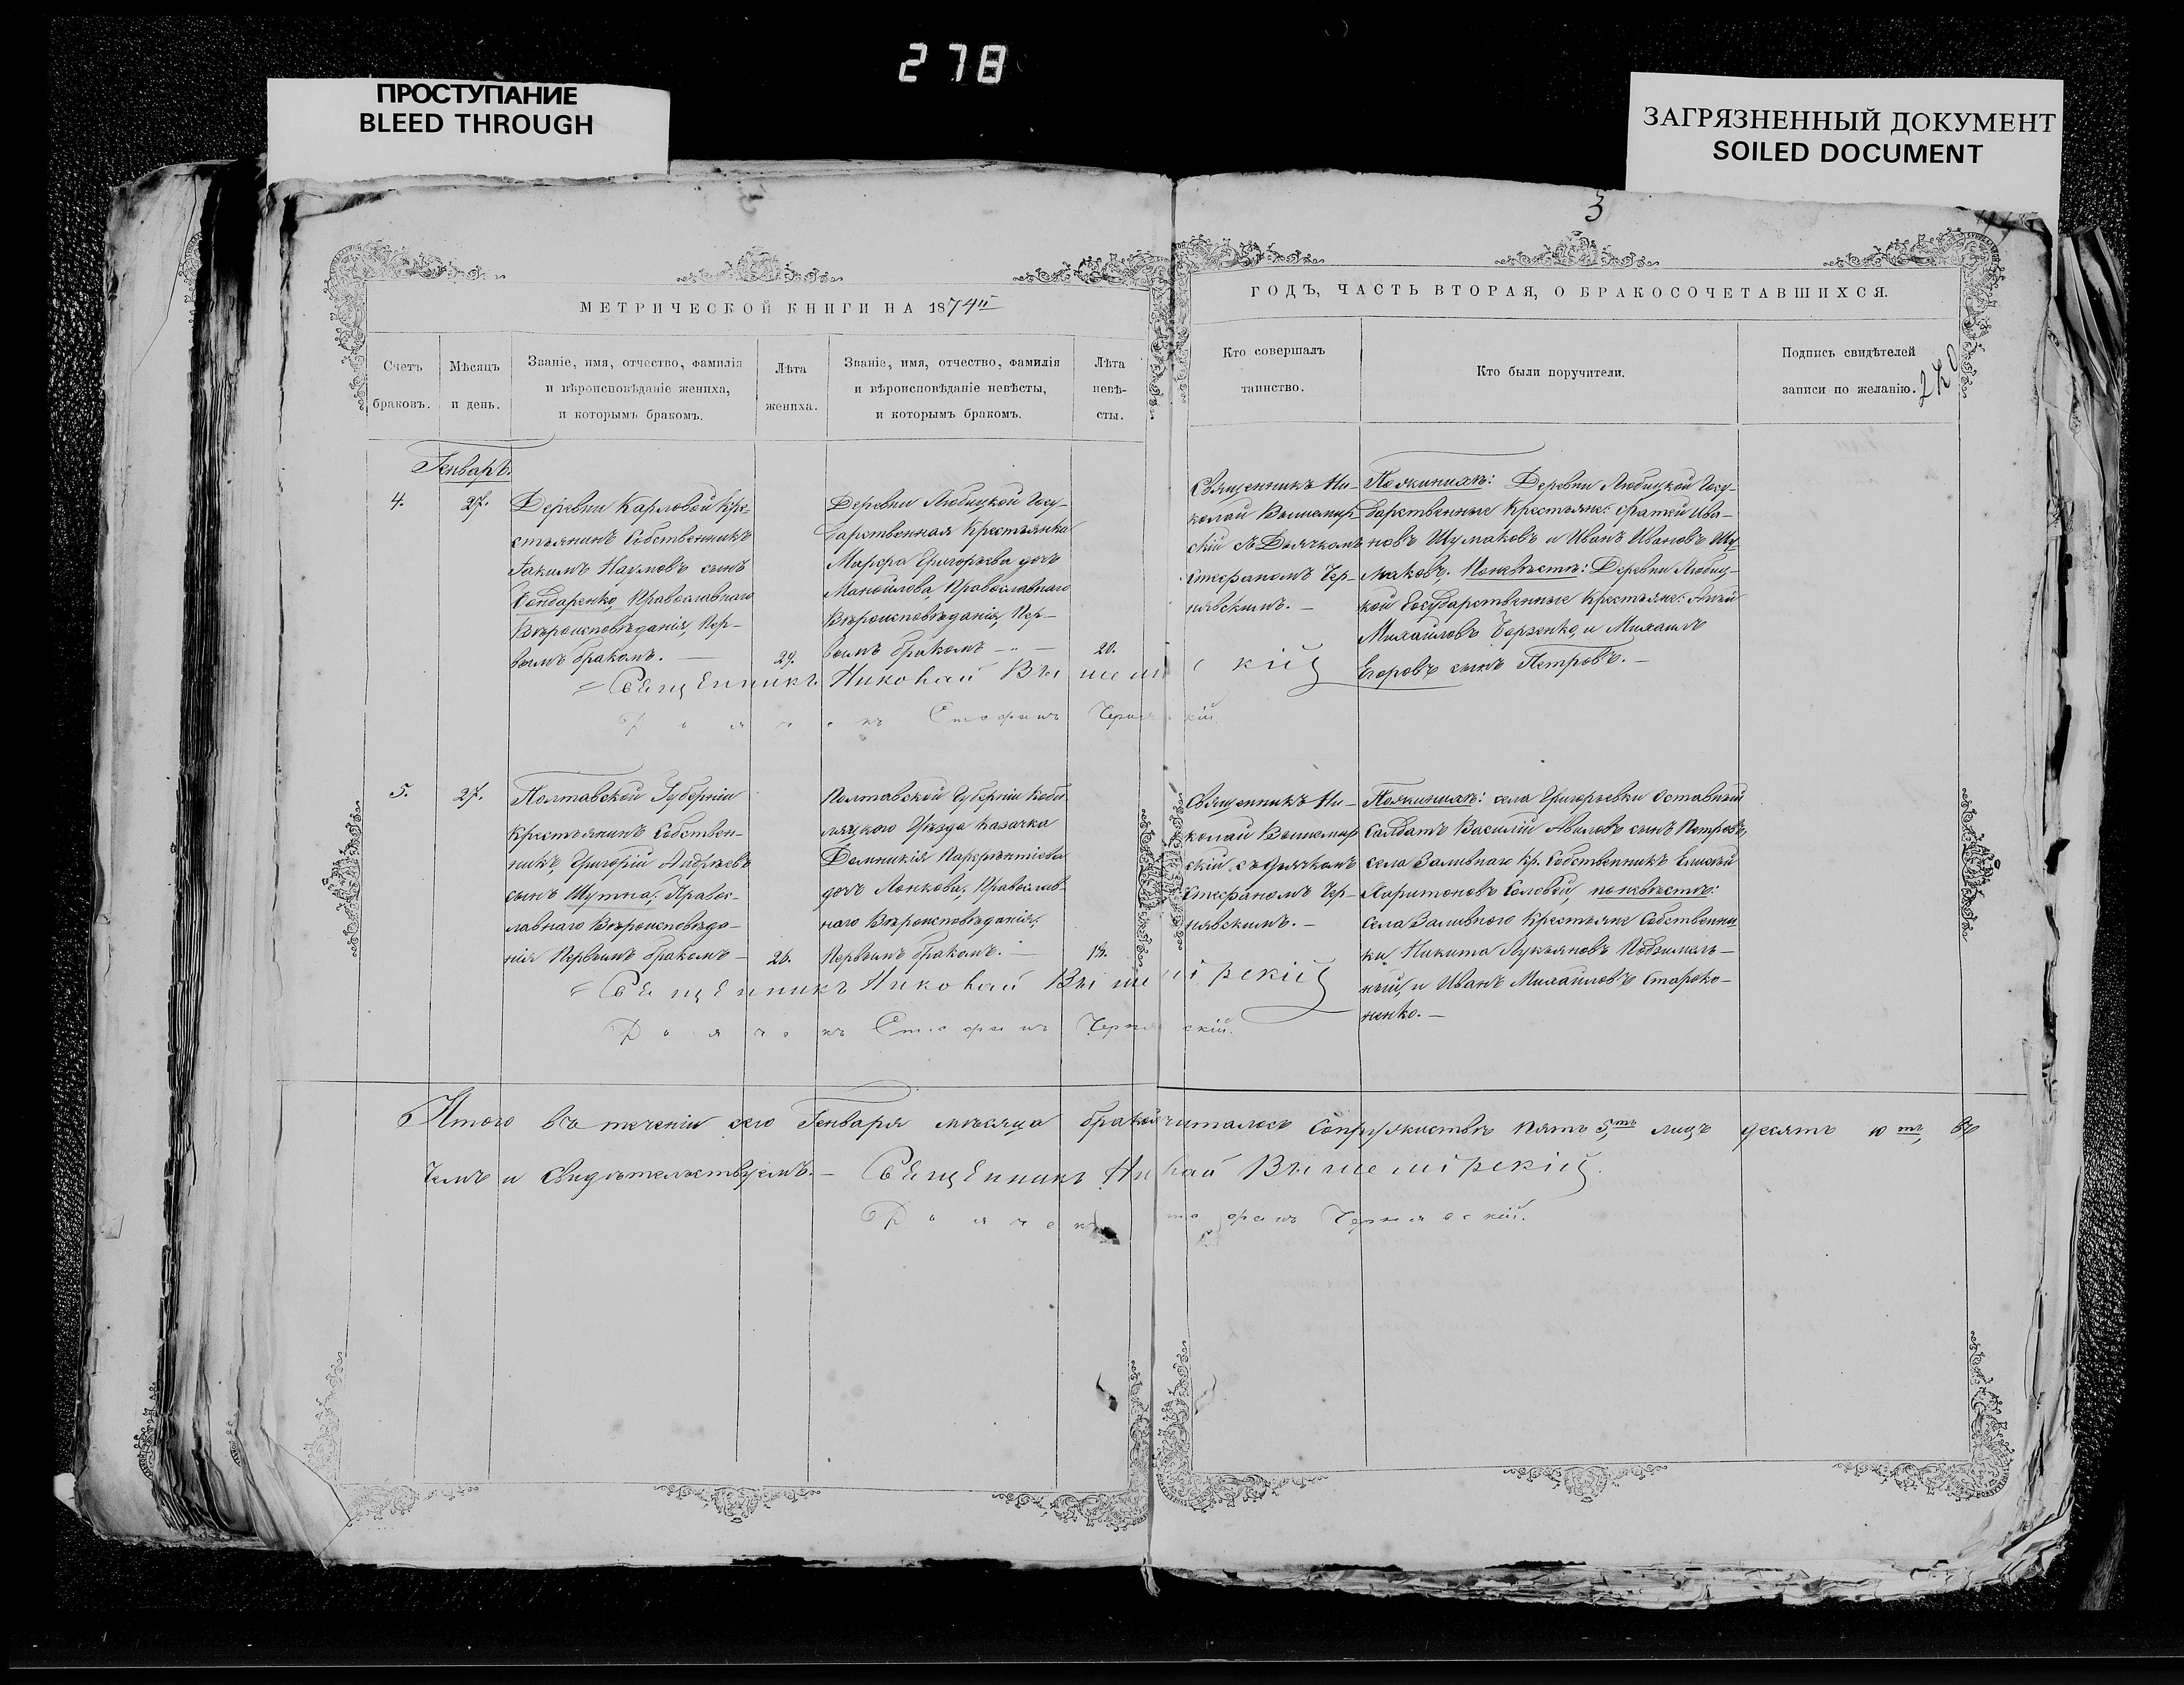 278
ПРОСТУПАНИЕ
BLEED THROUGH
ЗАГРЯЗНЕННЫЙ ДОКУМЕНТ
SOILED DOCUMENT
3
МЕТРИЧЕСКОЙ КНИГИ НА 1874й
ГОДЪ, ЧАСТЬ ВТОРАЯ, О БРАКОСОЧЕТАВШИХСЯ.
Счетъ
браковъ.
Мѣсяцъ
и день.
Званіе, имя, отчество, фамилія
и вѣроисповѣданіе жениха,
и которымъ бракомъ.
Лѣта
жениха.
Званіе, имя, отчество, фамилія
и вѣроисповѣданіе невѣсты,
и которымъ бракомъ.
Лѣта
невѣ-
сты.
Кто совершалъ
таинство.
Кто были поручители.
Подпись свидѣтелей
записи по желанію.
Генварь.
4.
27.
Деревни Карловой Кре-
стьянинъ Собственникъ
Іакимъ Наумовъ сынъ
Бондаренко, Православнаго
Вѣроисповѣданія, Пер-
вымъ бракомъ. —
29.
Деревни Любицкой Госу-
дарственная Крестьянка
Марфа Григорьева дочь
Манойлова, Православнаго
Вѣроисповѣданія, Пер-
вымъ бракомъ —
20.
Священникъ Ни-
колай Вышемир-
скій съ Дьячкомъ
Стефаномъ Чер-
нявскимъ. —
По женихѣ: Деревни Любицкой Госу-
дарственные Крестьяне: Фатей Ива-
новъ Шумаковъ и Иванъ Ивановъ Шу-
маковъ. По невѣстѣ: Деревни Любиц-
кой Государственные Крестьяне:
Михайловъ и Михаилъ
Егоровъ сынъ Петровъ. —
Священникъ Николай Вышемірскій
Дьячокъ Стефанъ Чернявскій.
5.
27.
Полтавской Губерніи
Крестьянинъ Собствен-
никъ, Григорій Андреевъ
сынъ Шутка, Правос-
лавнаго Вѣроисповѣда-
нія Первымъ бракомъ —
26.
Полтавской Губерніи Кобе
ляцкого Уѣзда Казачка
Домникія
дочь Лонкова, Православ-
наго Вѣроисповѣданія,
Первымъ бракомъ. —
18.
Священникъ Ни-
колай Вышемир
скій съ Дьячкомъ
Стефаномъ Чер-
нявскимъ. —
По женихѣ: села Григорьевки Отставный
Салдатъ Василій сынъ Петровъ,
села Заливнаго Кр. Собственникъ Елисѣй
Харитоновъ Соловей, по невѣстѣ:
Села Заливного Крестьяне Собственни
ки Никита Лукьяновъ
и Иванъ Михайловъ Староко-
ненко. —
Священникъ Николай Вышемірскій
Дьячокъ Стефанъ Чернявскій.
Итого въ теченіи сего Генваря мѣсяца бракомъ читалось Супружествъ пять 5ть лицъ десять 10ть, въ
чемъ и свидѣтельствуемъ. — Священникъ Николай Вышемірскій.
Дьячокъ Стефанъ Чернявскій.